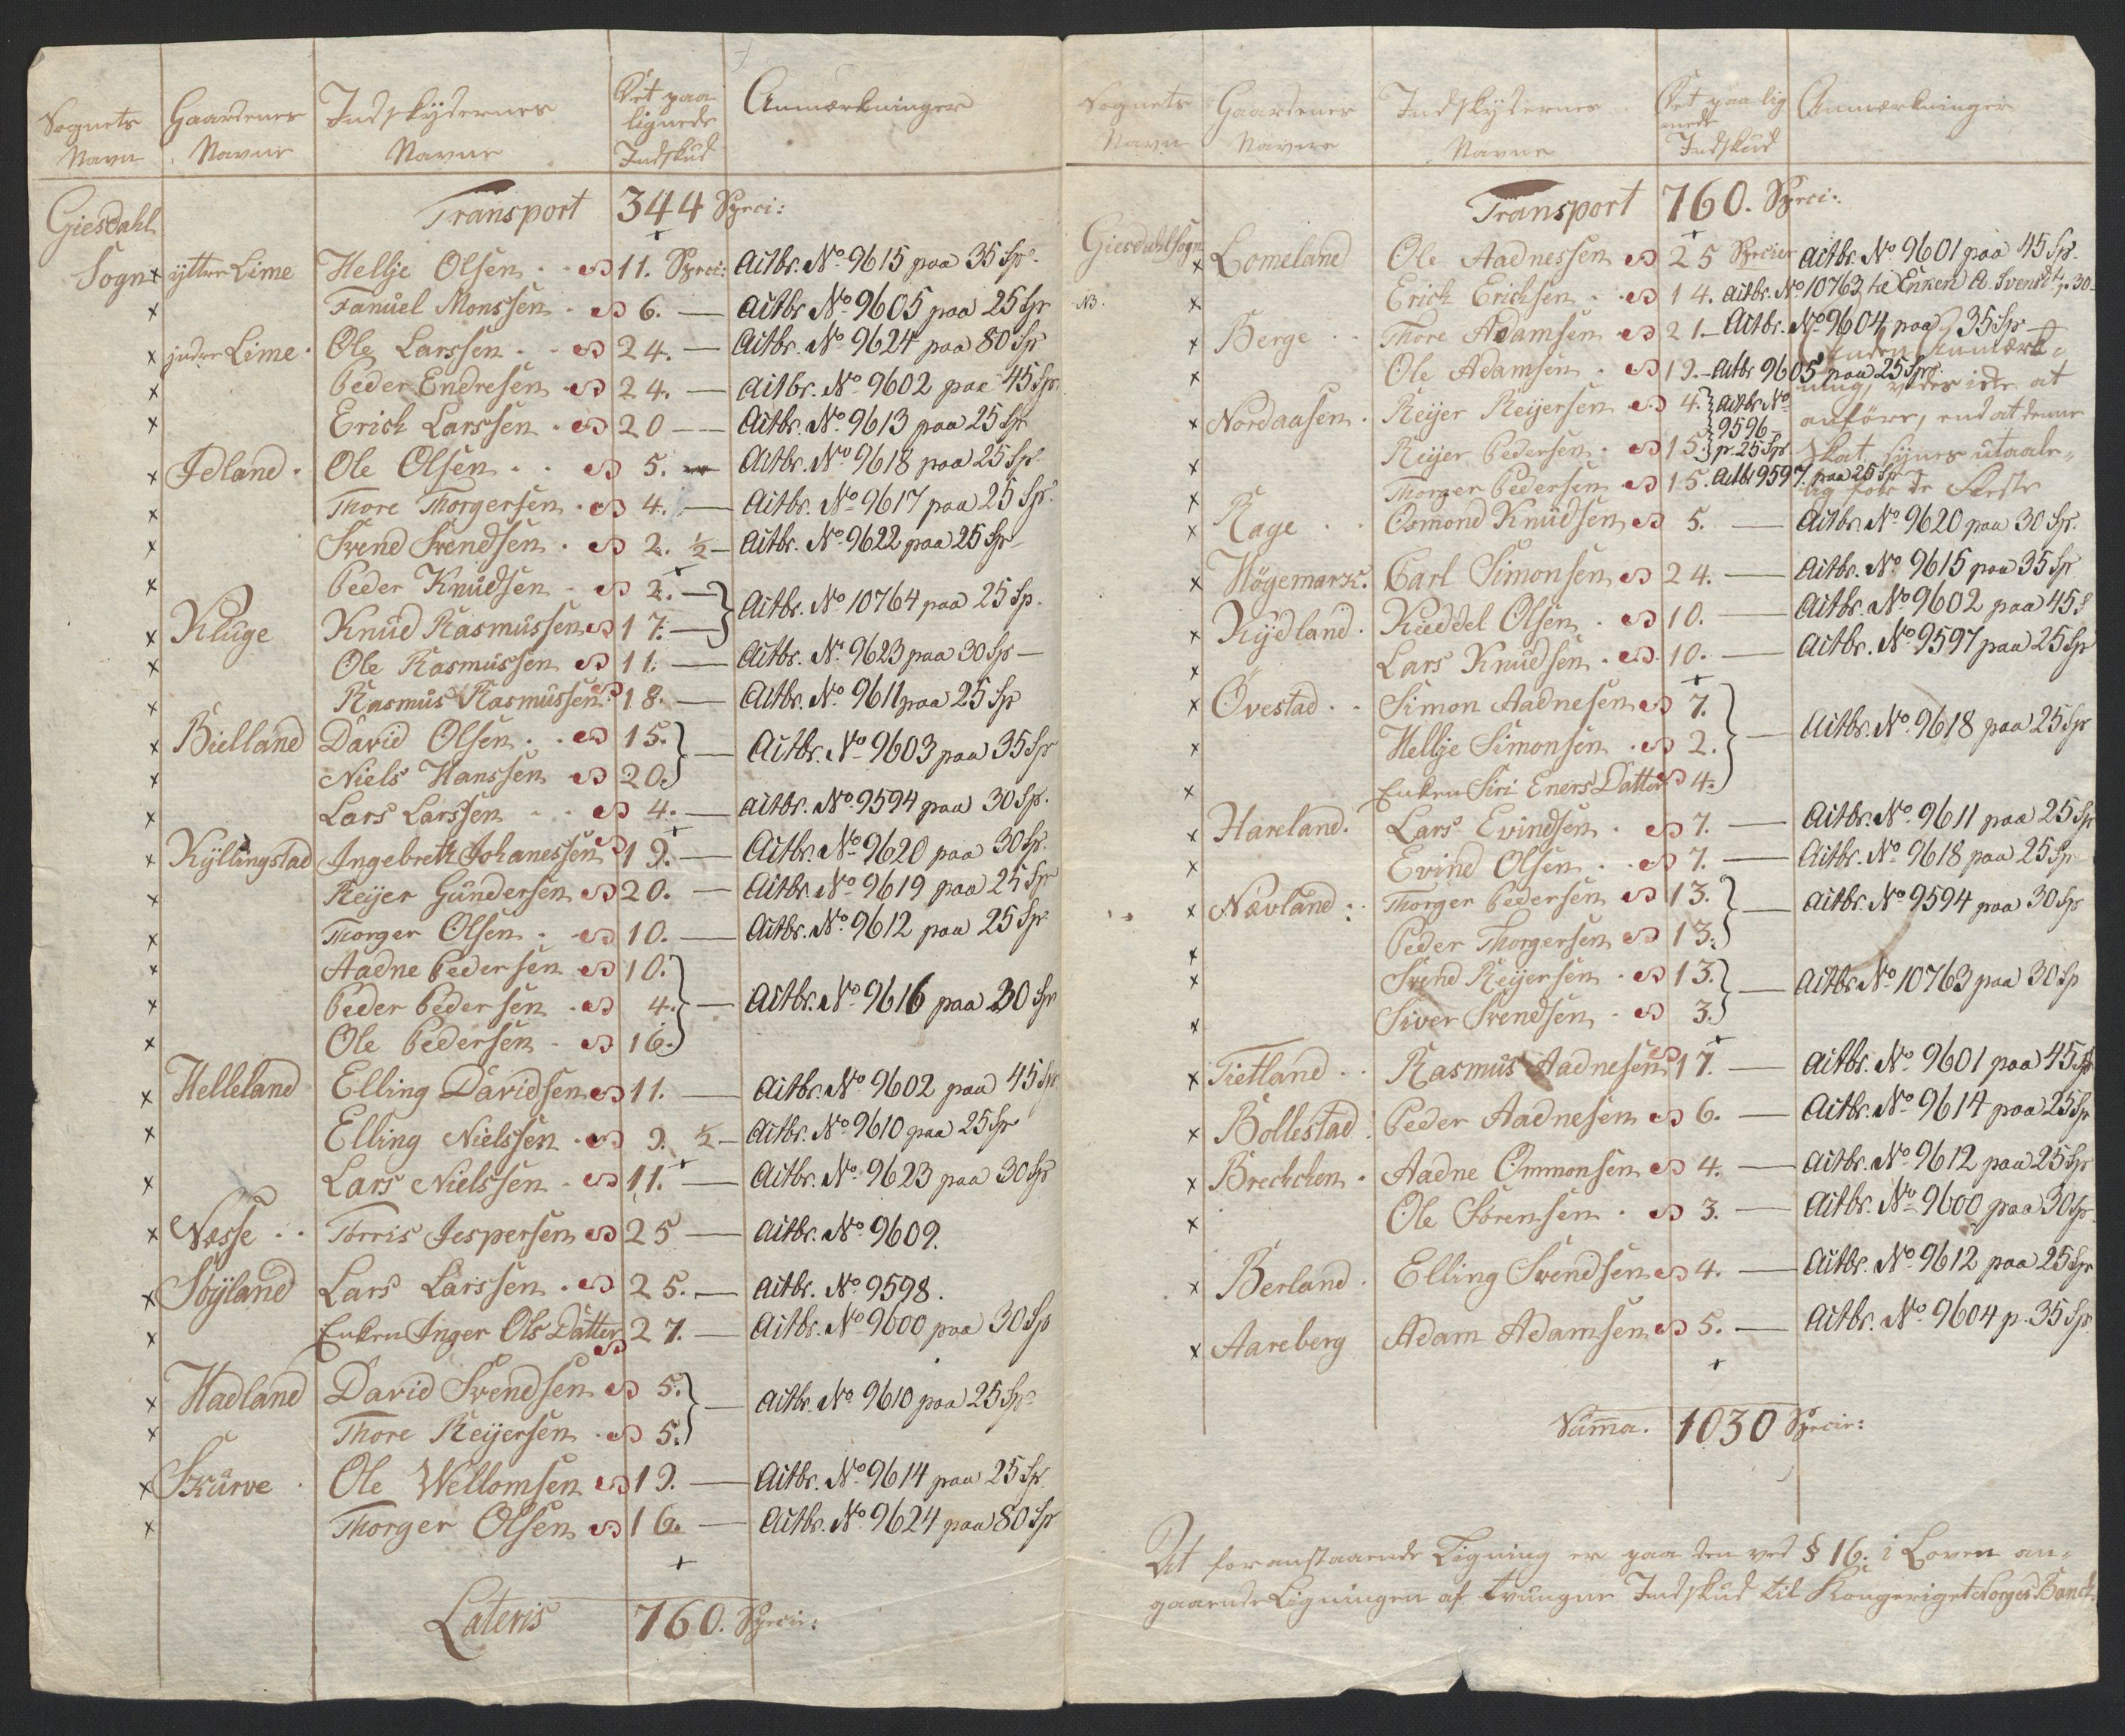 Sognets Navn | Gaardenes Navne | Indskydernes Navne | Det paa lignede Indskud | Anmærkninger
Transport 344 Speci:
Giesdahl
Sogn x yttre Lime Hellje Olsen . . 11. Speci: Actbr. No 9615 paa 35 Sp.
x Fanuel Monssen . 6. — Actbr No 9605 paa 25 Sp
x indre Lime . Ole Larssen . . 24. — Actbr. No 9624 paa 80 Sp
x Peder Endresen . 24. — Actbr. No 9602 paa 45 Sp.
x Erich Larssen . 20 — Actbr. No 9613 paa 25 Sp
x Idland . Ole Olsen . . 5. — Actbr. No 9618 paa 25 Sp.
x Thore Thorgersen . 4. — Actbr. No 9617 paa 25 Sp.
x Svend Svendsen . 2. ½ — Actbr. No 9622 paa 25 Sp
x Peder Knudsen . 2. — } Actbr. No 10764 paa 25 Sp.
x Kluge Knud Rasmussen 17. — }
x Ole Rasmussen 11. — Actbr. No 9623 paa 30 Sp —
x Rasmus Rasmussen 18. — Actbr. No 9611 paa 25 Sp
x Bielland David Olsen . . 15. } — Actbr. No 9603 paa 35 Sp
x Niels Hanssen 20. }
x Lars Larssen . . 4. — Actbr. No 9594 paa 30 Sp.
x Kyllingstad Ingebreth Johanessen 19. — Actbr. No 9620 paa 30 Sp.
x Reijer Gundersen 20. — Actbr. No 9619 paa 25 Sp
x Thorger Olsen . 10. — Actbr. No 9612 paa 25 Sp
x Aadne Pedersen 10. }
x Peder Pedersen . 4. } — Actbr. No 9616 paa 30 Sp
x Ole Pedersen . 16. }
x Helleland Elling Davidsen 11. — Actbr. No 9602 paa 45 Sp
x Elling Nielssen . 9. ½ — Actbr. No 9610 paa 25 Sp
x Lars Nielssen . 11. — Actbr. No 9623 paa 30 Sp
x Næsse . . Torris Jespersen 25 — Actbr. No 9609.
x Søyland Lars Larssen . 25. — Actbr. No 9598.
x Enken Inger Ols Datter 27. — Actbr. No 9600 paa 30 Sp
x Hadland David Svendsen 5. } — Actbr. No 9610 paa 25 Sp
x Thore Reijersen . 5. }
x Skurve . Ole Wellomsen 19. — Actbr. No 9614 paa 25 Sp.
x Thorger Olsen 16. — Actbr. No 9624 paa 80 Sp
Lateris 760. Specie:
Sognets Navn | Gaardenes Navne | Indskydernes Navne | Det paa lig nede Indskud | Anmærkninger
Transport 760. Speci:
Giesdahl Sogn x Lomeland Ole Aadnessen 25 Specier Actbr. No 9601 paa 45 Sp.
NB. x Erich Erichsen . . 14. Actbr. No 10763 til Enken A. Svensdt. p. 30
x Berge . . Thore Adamsen 21 — Actbr. No 9604 paa 35 Sp
Anden Anmærk=
x Ole Adamsen . 19. — Actbr 9605 paa 25 Sp.
ning, vides ikke at
x Nordaasen . Reijer Reijersen 4. } Actbr No 9596 p. 25 Sp.
anføre, end at denne
x Reijer Pedersen . 15. }
Skat synes utaale=
x Thorger Pedersen 15. Actbr 9597. paa 25 Sp
lig for de fleste
x Rage . . Osmond Knudsen 5. — Actbr. No 9620 paa 30 Sp.
x Høgemark. Carl Simonsen 24. — Actbr. No 9615 paa 35 Sp
x Kydland . Kieddel Olsen . 10. — Actbr. No 9602 paa 45 S
x Lars Knudsen . 10. — Actbr. No 9597 paa 25 Sp
x Øvestad . . Simon Aadnesen 7. }
x Hellje Simonsen . 2. } — Actbr. No 9618 paa 25 Sp
x Enken Siri Eners Datter 4. }
x Hareland. Lars Evindsen . 7. — Actbr. No 9611 paa 25 Sp
x Evind Olsen . . 7. — Actbr. No 9618 paa 25 Sp
x Nævland : Thorger Pedersen 13. } — Actbr. No 9594 paa 30 Sp
x Peder Thorgersen 13. }
x Svend Reijersen . 13. } — Actbr No 10763 paa 30 Sp
x Siver Svendsen . 3. }
x Tietland . . Rasmus Aadnesen 17. — Actbr. No 9601 paa 45 Sp
x Bollestad Peder Aadnesen 6. — Actbr. No 9614 paa 25 Sp
x Brechchen . Aadne Ommonsen 4. — Actbr. No 9612 paa 25 Sp
x Ole Sørensen . 3. — Actbr. No 9600 paa 30 Sp
x Berland . Elling Svendsen 4. — Actbr. No 9612 paa 25 Sp
x Aareberg Adam Adamsen 5. — Actbr. No 9604 p. 35 Sp
Suma. 1030 Specie:
At foranstaaende Ligning er paa den ved § 16. i Loven an=
gaaende Ligningen af tvungne Indskud til Kongeriget Norges Banck